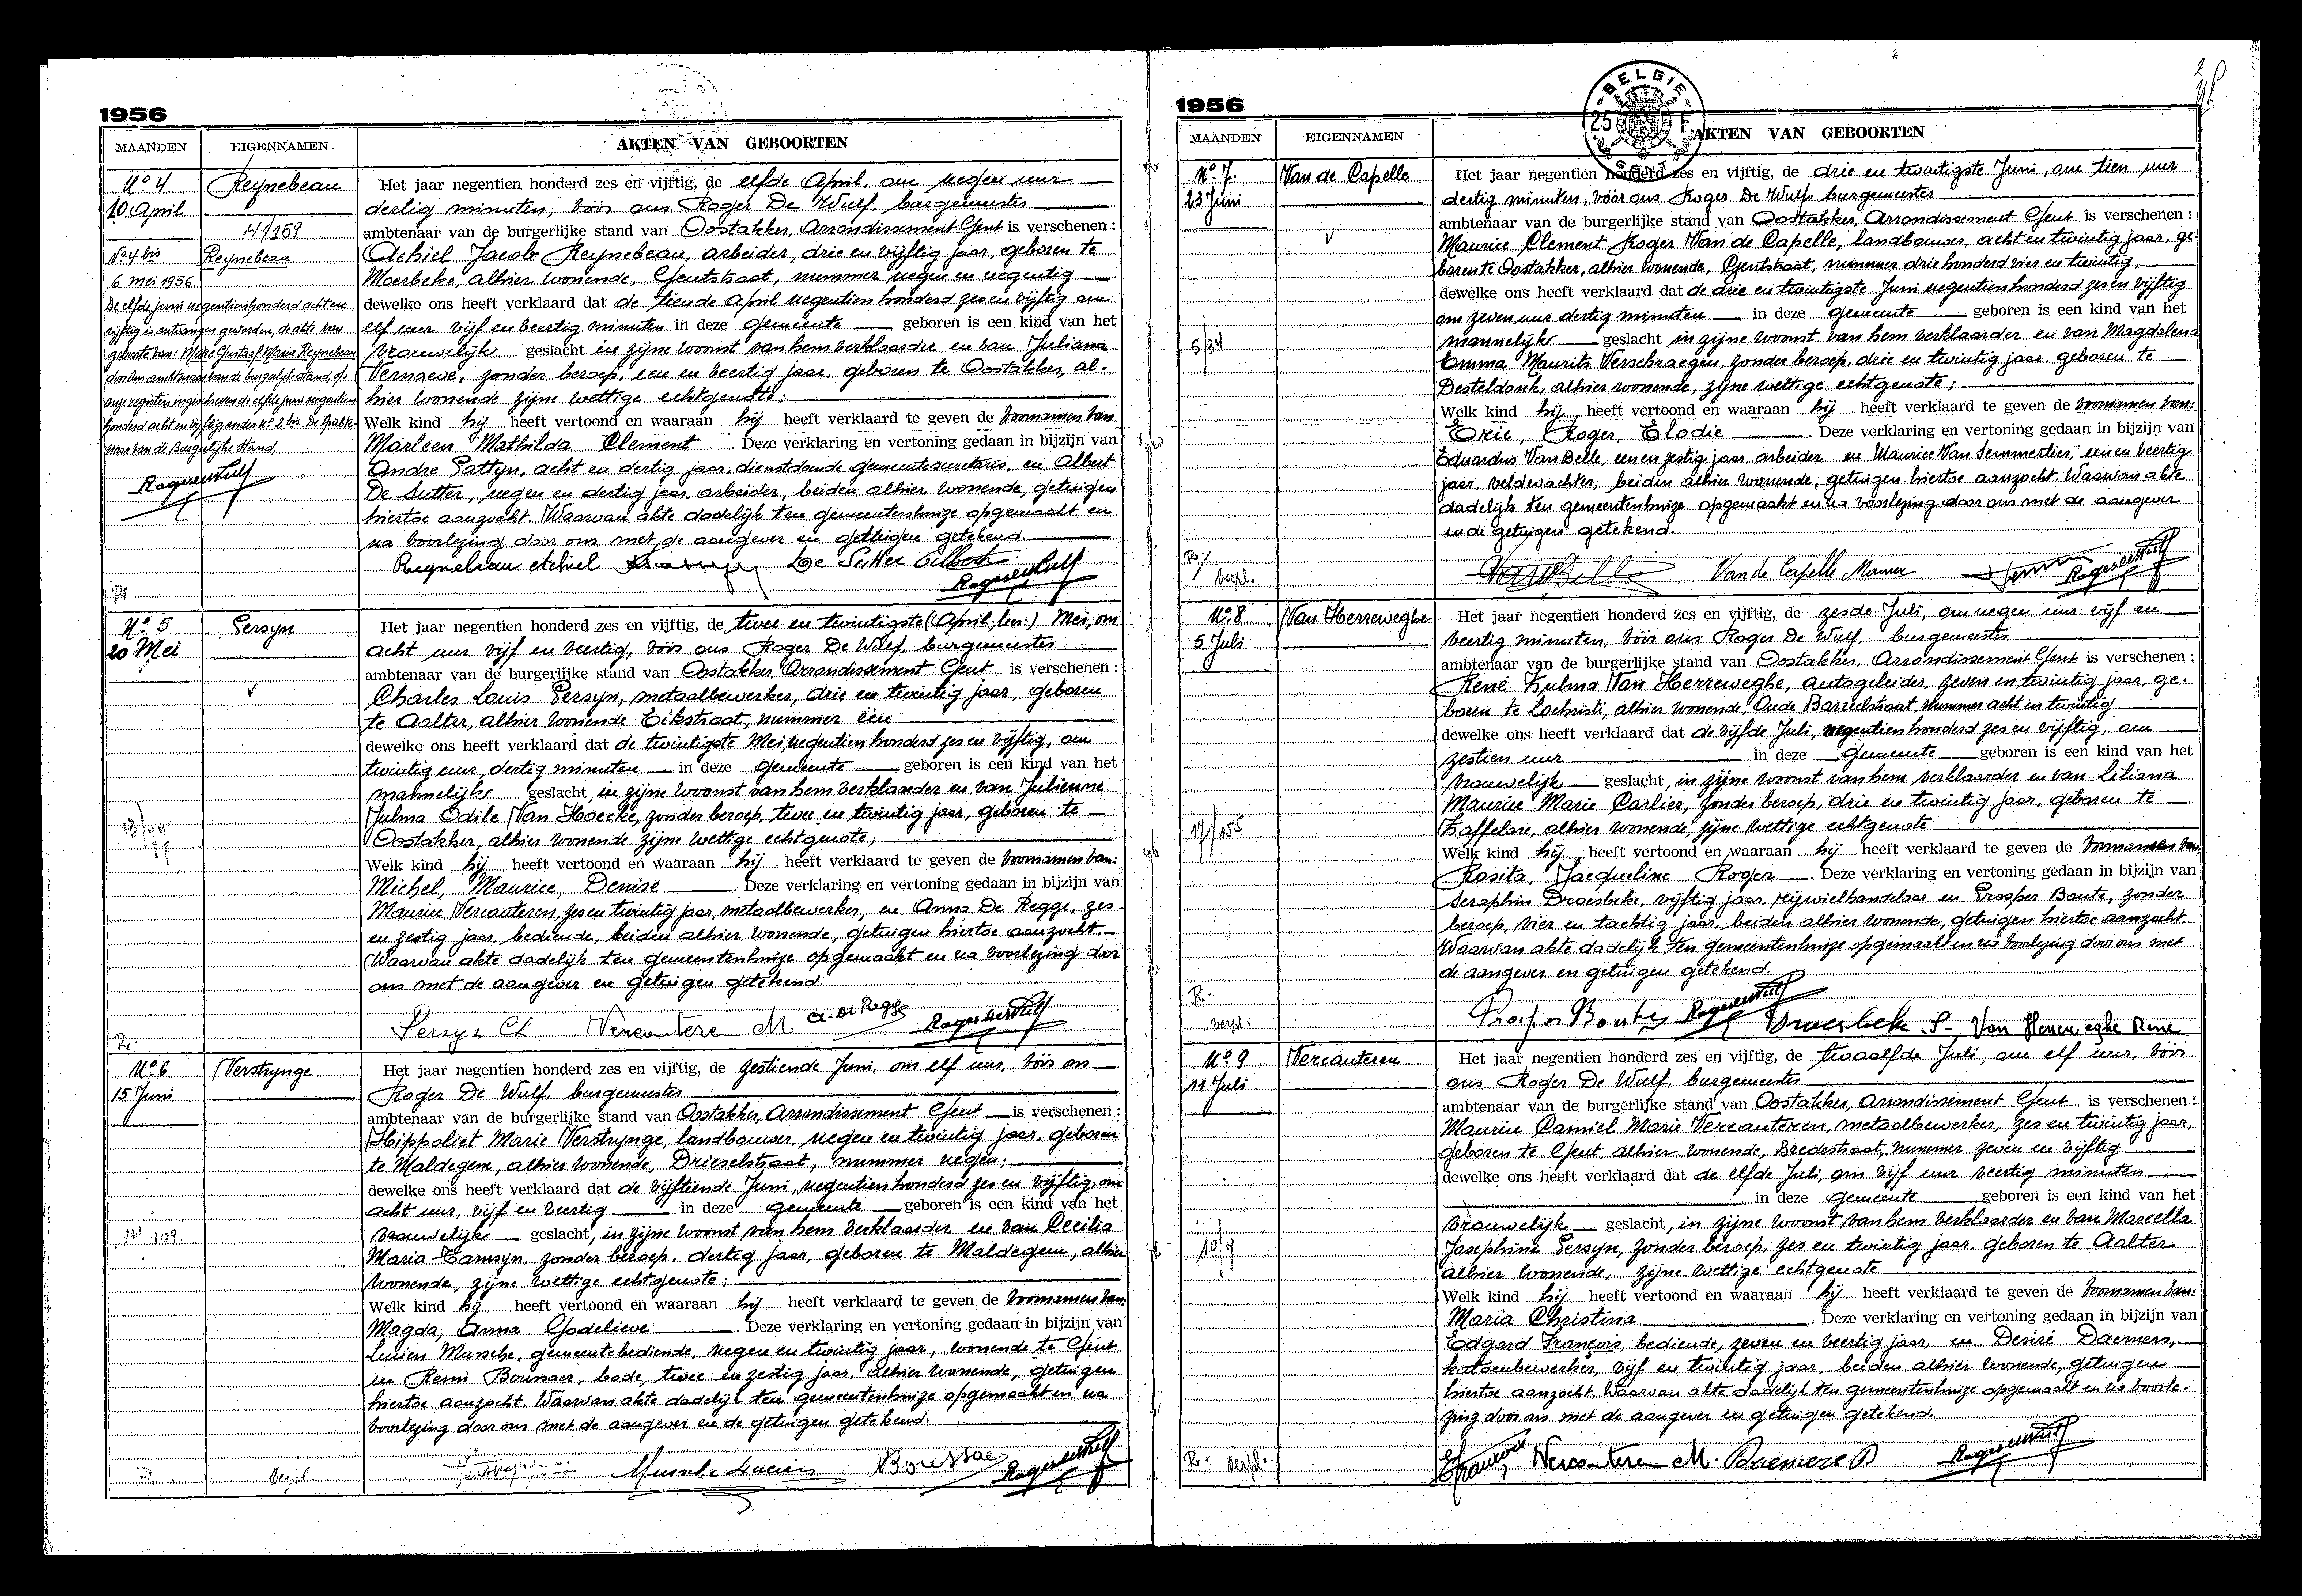 1956
MAANDEN EIGENNAMEN. AKTEN VAN GEBOORTEN
No 4
10 April
Reynebeau
4/159
No 4 bis Reynebeau
6 mei 1956
De elfde juni negentienhonderd acht en
vijftig is ontvangen geworden, de akte van
geboorte van: Marc Gustaaf Maria Reynebeau
door den ambtenaar van de burgerlijke stand, op
onze registers ingeschreven de elfde juni negentien
honderd acht en vijftig onder No 2 bis. De Ambte-
naar van de Burgerlijke Stand,
Roger De Wulf
Het jaar negentien honderd zes en vijftig, de elfde April, om negen uur
dertig minuten, vóór ons Roger De Wulf, burgemeester
ambtenaar van de burgerlijke stand van Oostakker, Arrondissement Gent is verschenen :
Achiel Jacob Reynebeau, arbeider, drie en vijftig jaar, geboren te
Moerbeke, alhier wonende, Gentstraat, nummer negen en negentig
dewelke ons heeft verklaard dat de tiende April negentien honderd zes en vijftig om
elf uur vijf en veertig minuten in deze gemeente geboren is een kind van het
vrouwelijk geslacht in zijne woonst van hem verklaarder en van Juliana
Vernaeve, zonder beroep, een en veertig jaar, geboren te Oostakker, al-
hier wonende zijne wettige echtgenote;
Welk kind hij heeft vertoond en waaraan hij heeft verklaard te geven de voornamen van
Marleen Mathilda Clement . Deze verklaring en vertoning gedaan in bijzijn van
Andre Pattyn, acht en dertig jaar, dienstdoende gemeentesecretaris, en Albert
De Sutter, negen en dertig jaar, arbeider, beiden alhier wonende, getuigen
hiertoe aanzocht. Waarvan akte dadelijk ten gemeentenhuize opgemaakt en
na voorlezing door ons met de aangever en getuigen getekend.
Reynebeau Achiel De Sutter Albert
Roger De Wulf
No 5
20 Mei
Persyn
Het jaar negentien honderd zes en vijftig, de twee en twintigste (April, lees:) Mei, om
acht uur vijf en veertig, vóór ons Roger De Wulf, burgemeester
ambtenaar van de burgerlijke stand van Oostakker, Arrondissement Gent is verschenen :
Charles Louis Persyn, metaalbewerker, drie en twintig jaar, geboren
te Aalter, alhier wonende Eikstraat, nummer één
dewelke ons heeft verklaard dat de twintigste Mei negentien honderd zes en vijftig, om
twintig uur, dertig minuten in deze gemeente geboren is een kind van het
mannelijk geslacht, in zijne woonst van hem verklaarder en van Julienne
Julma Odile Van Hoecke, zonder beroep, twee en twintig jaar, geboren te
Oostakker, alhier wonende zijne wettige echtgenote;
Welk kind hij heeft vertoond en waaraan hij heeft verklaard te geven de voornamen van:
Michel, Maurice, Denise . Deze verklaring en vertoning gedaan in bijzijn van
Maurice Vercauteren, zes en twintig jaar, metaalbewerker, en Anna De Regge, zes
en zestig jaar, bediende, beiden alhier wonende, getuigen hiertoe aanzocht.
Waarvan akte dadelijk ten gemeentenhuize opgemaakt en na voorlezing door
ons met de aangever en getuigen getekend.
Persyn Ch Vercauteren M. A. De Regge Roger De Wulf
No 6
15 Juni
Verstrynge
109.
Het jaar negentien honderd zes en vijftig, de zestiende Juni, om elf uur, vóór ons
Roger De Wulf, burgemeester
ambtenaar van de burgerlijke stand van Oostakker, Arrondissement Gent is verschenen :
Hippoliet Marie Verstrynge, landbouwer, negen en twintig jaar, geboren
te Maldegem, alhier wonende, Drieselstraat, nummer negen;
dewelke ons heeft verklaard dat de vijftiende Juni, negentien honderd zes en vijftig, om
acht uur, vijf en veertig in deze gemeente geboren is een kind van het
vrouwelijk geslacht, in zijne woonst van hem verklaarder en van Cecilia
Maria Tamsyn, zonder beroep, dertig jaar, geboren te Maldegem, alhier
wonende, zijne wettige echtgenote;
Welk kind hij heeft vertoond en waaraan hij heeft verklaard te geven de voornamen van:
Magda, Anna Godelieve . Deze verklaring en vertoning gedaan in bijzijn van
Lucien Mussche, gemeentebediende, negen en twintig jaar, wonende te Gent
en Remi Boussaer, bode, twee en zestig jaar, alhier wonende, getuigen
hiertoe aanzocht. Waarvan akte dadelijk ten gemeentenhuize opgemaakt en na
voorlezing door ons met de aangever en de getuigen getekend.
Mussche Lucien Boussaer Roger De Wulf
1956
BELGIE
25 F
MAANDEN EIGENNAMEN AKTEN VAN GEBOORTEN
No 7.
23 Juni
Van de Capelle
5/34
Het jaar negentien honderd zes en vijftig, de drie en twintigste Juni, om tien uur
dertig minuten, vóór ons Roger De Wulf burgemeester
ambtenaar van de burgerlijke stand van Oostakker, Arrondissement Gent is verschenen :
Maurice Clement Roger Van de Capelle, landbouwer, acht en twintig jaar, ge-
boren te Oostakker, alhier wonende, Gentstraat, nummer drie honderd vier en twintig,
dewelke ons heeft verklaard dat de drie en twintigste Juni negentien honderd zes en vijftig
om zeven uur dertig minuten in deze gemeente geboren is een kind van het
mannelijk geslacht in zijne woonst van hem verklaarder en van Magdalena
Emma Maurits Verschraegen, zonder beroep, drie en twintig jaar, geboren te
Desteldonk, alhier wonende, zijne wettige echtgenote;
Welk kind hij heeft vertoond en waaraan hij heeft verklaard te geven de voornamen van:
Eric, Roger, Elodie . Deze verklaring en vertoning gedaan in bijzijn van
Eduardus Van Belle, een en zestig jaar, arbeider en Maurice Van Semmertier, een en veertig
jaar, veldwachter, beiden alhier wonende, getuigen hiertoe aanzocht. Waarvan akte
dadelijk ten gemeentenhuize opgemaakt en na voorlezing door ons met de aangever
en de getuigen getekend.
Van Belle Van de Capelle Maurice Roger De Wulf
R.
verpl.
No 8
5 Juli
Van Herreweghe
17/155
Het jaar negentien honderd zes en vijftig, de zesde Juli, om negen uur vijf en
veertig minuten, vóór ons Roger De Wulf, burgemeester
ambtenaar van de burgerlijke stand van Oostakker, Arrondissement Gent is verschenen :
René Zulma Van Herreweghe, autogeleider, zeven en twintig jaar, ge-
boren te Lochristi, alhier wonende, Oude Bareelstraat, nummer acht en twintig
dewelke ons heeft verklaard dat de vijfde Juli, negentien honderd zes en vijftig, om
zestien uur in deze gemeente geboren is een kind van het
vrouwelijk geslacht, in zijne woonst van hem verklaarder en van Liliana
Maurice Marie Carlier, zonder beroep, drie en twintig jaar, geboren te
Zaffelare, alhier wonende, zijne wettige echtgenote
Welk kind hij heeft vertoond en waaraan hij heeft verklaard te geven de voornamen van:
Rosita, Jacqueline Roger . Deze verklaring en vertoning gedaan in bijzijn van
Seraphin Droesbeke, vijftig jaar, rijwielhandelaar en Prosper Baute, zonder
beroep, vier en tachtig jaar, beiden alhier wonende, getuigen hiertoe aanzocht.
Waarvan akte dadelijk ten gemeentenhuize opgemaakt en na voorlezing door ons met
de aangever en getuigen getekend.
Roger De Wulf Droesbeke S. Van Herreweghe René
R.
verpl.
No 9
11 Juli
Vercauteren
10/7
Het jaar negentien honderd zes en vijftig, de twaalfde Juli, om elf uur, vóór
ons Roger De Wulf, burgemeester
ambtenaar van de burgerlijke stand van Oostakker, Arrondissement Gent is verschenen :
Maurice Camiel Marie Vercauteren, metaalbewerker, zes en twintig jaar,
geboren te Gent, alhier wonende, Bredestraat, nummer zeven en vijftig
dewelke ons heeft verklaard dat de elfde Juli, om vijf uur veertig minuten
in deze gemeente geboren is een kind van het
vrouwelijk geslacht, in zijne woonst van hem verklaarder en van Marcella
Josephine Persyn, zonder beroep, zes en twintig jaar, geboren te Aalter
alhier wonende, zijne wettige echtgenote
Welk kind hij heeft vertoond en waaraan hij heeft verklaard te geven de voornamen van:
Maria Christina . Deze verklaring en vertoning gedaan in bijzijn van
Edgard François, bediende, zeven en veertig jaar, en Desiré Daemers,
katoenbewerker, vijf en twintig jaar, beiden alhier wonende, getuigen
hiertoe aanzocht. Waarvan akte dadelijk ten gemeentenhuize opgemaakt en na voorle-
zing door ons met de aangever en getuigen getekend.
R. verpl. Vercauteren M. Roger De Wulf